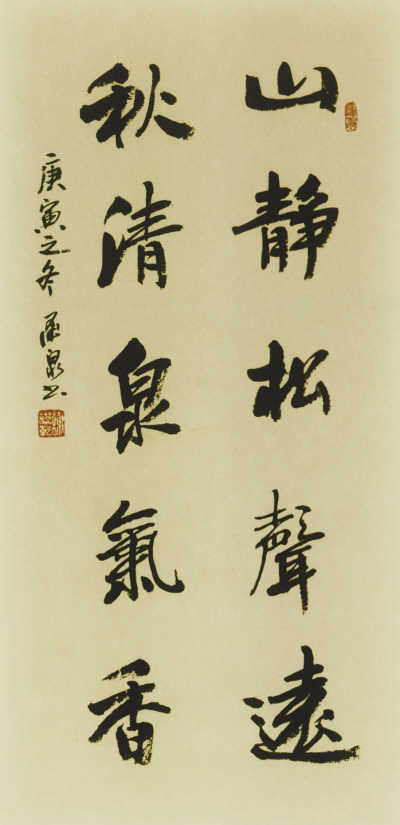 山靜松聲遠
秋清泉氣香
庚寅之冬 泉书